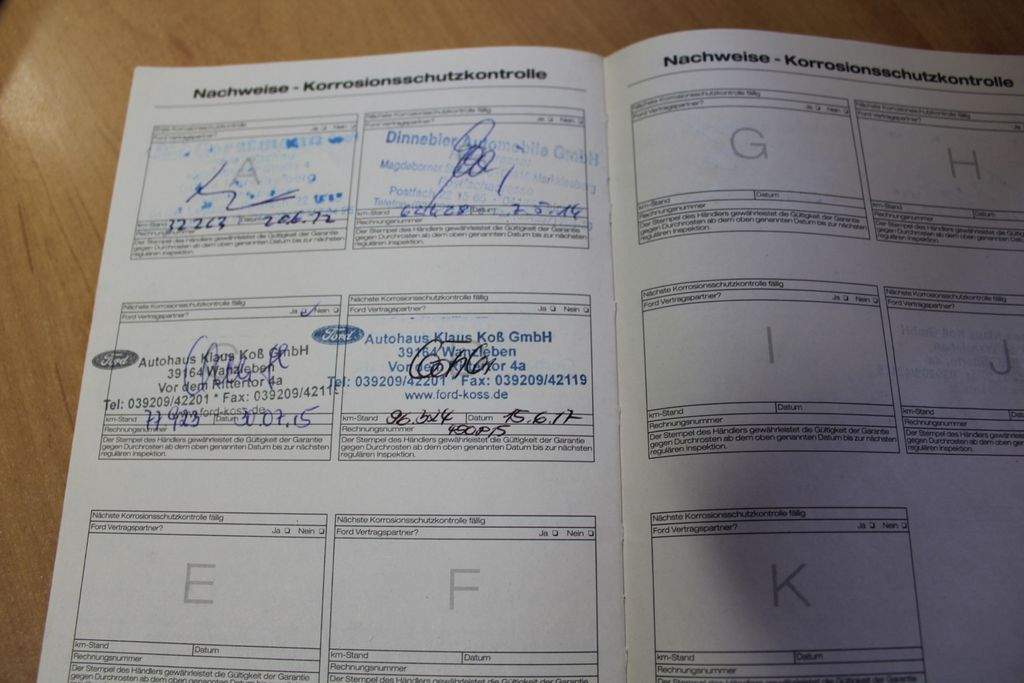 Nachweise - Korrosionsschutzkontrolle
Nächste Korrosionsschutzkontrolle
Ford Vertragspartner? Ja Nein
A
km-Stand 32263 Datum
Rechnungsnummer
Der Stempel des Händlers gewährleistet die Gültigkeit der Garantie
gegen Durchrosten ab dem oben genannten Datum bis zur nächsten
regulären Inspektion.
Nächste Korrosionsschutzkontrolle fällig
Ja Nein
Dinnebier Automobile GmbH
Magdeborner
Postfach
Telefon
km-Stand 62428 Datum 7.5.14
Rechnungsnummer
Der Stempel des Händlers gewährleistet die Gültigkeit der Garantie
gegen Durchrosten ab dem oben genannten Datum bis zur nächsten
regulären Inspektion.
Nächste Korrosionsschutzkontrolle fällig
Ford Vertragspartner? Ja Nein
Ford Autohaus Klaus Koß GmbH
39164 Wanzleben
Vor dem Rittertor 4a
Tel: 039209/42201 * Fax: 039209/4211
www.ford-koss.de
km-Stand 77423 Datum 30.07.15
Rechnungsnummer
Der Stempel des Händlers gewährleistet die Gültigkeit der Garantie
gegen Durchrosten ab dem oben genannten Datum bis zur nächsten
regulären Inspektion.
Nächste Korrosionsschutzkontrolle fällig
Ford Vertragspartner? Ja Nein
Ford Autohaus Klaus Koß GmbH
39164 Wanzleben
Vor dem Rittertor 4a
Tel: 039209/42201 * Fax: 039209/42119
www.ford-koss.de
km-Stand 96.324 Datum 15.6.17
Rechnungsnummer
Der Stempel des Händlers gewährleistet die Gültigkeit der Garantie
gegen Durchrosten ab dem oben genannten Datum bis zur nächsten
regulären Inspektion.
Nächste Korrosionsschutzkontrolle fällig
Ford Vertragspartner? Ja Nein
E
km-Stand Datum
Rechnungsnummer
Der Stempel des Händlers gewährleistet die Gültigkeit der Garantie
gegen Durchrosten ab dem oben genannten Datum bis zur nächsten
Nächste Korrosionsschutzkontrolle fällig
Ford Vertragspartner? Ja Nein
F
km-Stand Datum
Rechnungsnummer
Der Stempel des Händlers gewährleistet die Gültigkeit der Garantie
Nachweise - Korrosionsschutzkontrolle
Nächste Korrosionsschutzkontrolle fällig
Ford Vertragspartner? Ja Nein
G
km-Stand Datum
Rechnungsnummer
Der Stempel des Händlers gewährleistet die Gültigkeit der Garantie
gegen Durchrosten ab dem oben genannten Datum bis zur nächsten
regulären Inspektion.
Nächste Korrosionsschutzkontrolle fällig
Ford Vertragspartner? Ja
H
km-Stand Datum
Rechnungsnummer
Der Stempel des Händlers gewährleistet die Gültigkeit
gegen Durchrosten ab dem oben genannten Datum
regulären Inspektion.
Nächste Korrosionsschutzkontrolle fällig
Ford Vertragspartner? Ja Nein
I
km-Stand Datum
Rechnungsnummer
Der Stempel des Händlers gewährleistet die Gültigkeit der Garantie
gegen Durchrosten ab dem oben genannten Datum bis zur nächsten
regulären Inspektion.
Nächste Korrosionsschutzkontrolle
Ford Vertragspartner?
J
km-Stand Datum
Rechnungsnummer
Der Stempel des Händlers gewährleistet
gegen Durchrosten ab dem oben genannten
regulären Inspektion.
Nächste Korrosionsschutzkontrolle fällig
Ford Vertragspartner? Ja Nein
K
km-Stand Datum
Rechnungsnummer
Der Stempel des Händlers gewährleistet die Gültigkeit der Garantie